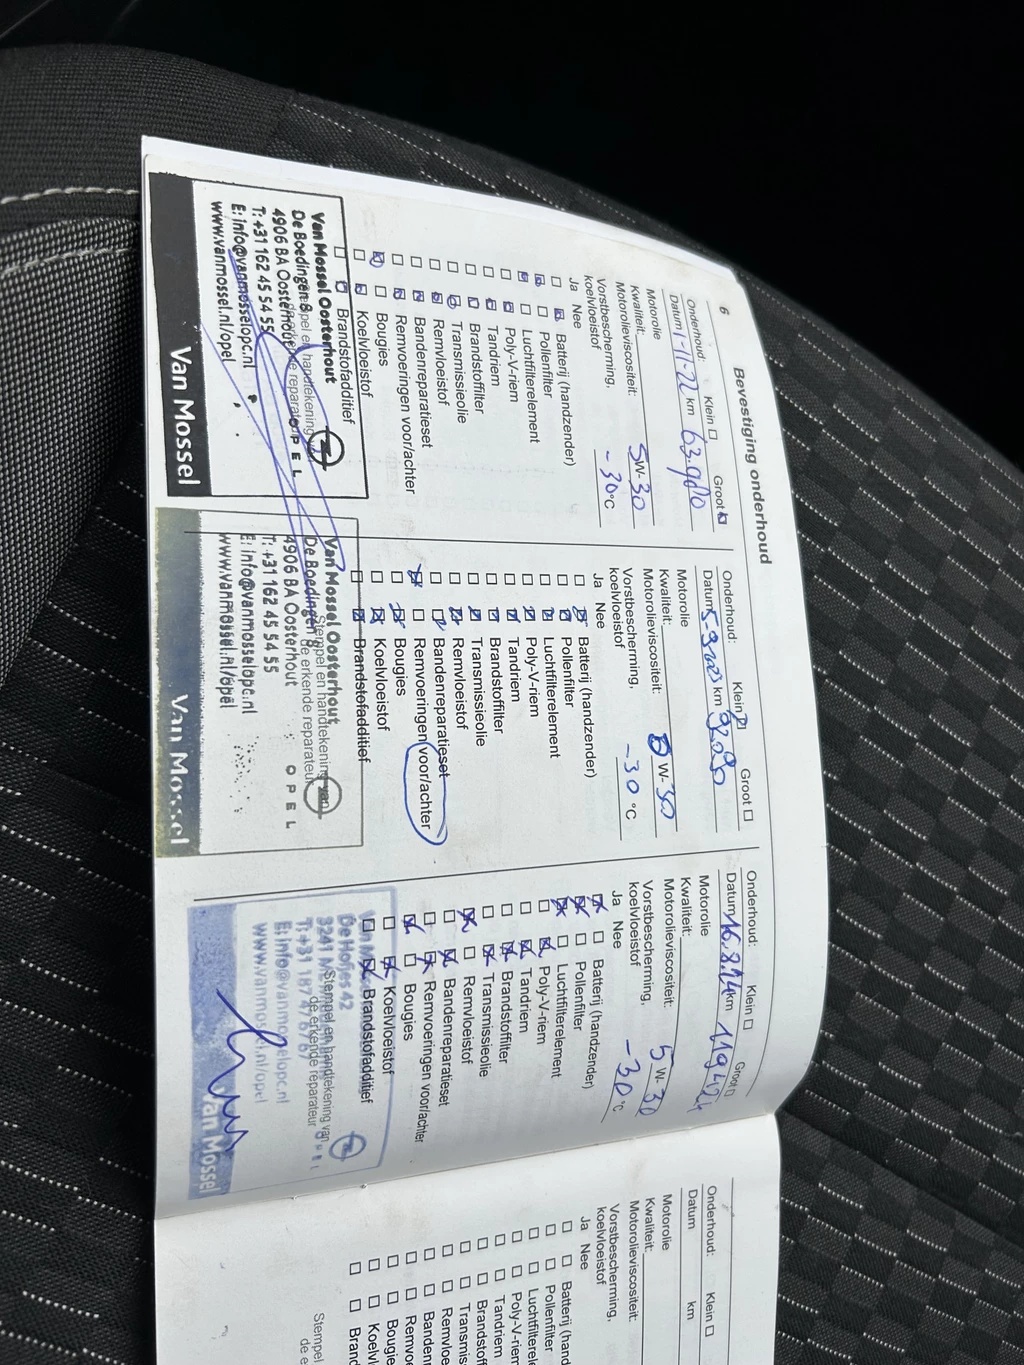 6
Bevestiging onderhoud
Onderhoud: Klein Groot
Datum 1-11-22 km
Motorolie
Kwaliteit:
Motorolieviscositeit: 5W-30
Vorstbescherming,
koelvloeistof -30 °C
Ja Nee
Batterij (handzender)
Pollenfilter
Luchtfilterelement
Poly-V-riem
Tandriem
Brandstoffilter
Transmissieolie
Remvloeistof
Bandenreparatieset
Remvoeringen voor/achter
Bougies
Koelvloeistof
Brandstofadditief
Van Mossel Oosterhout
De Boedingen 8
4906 BA Oosterhout
T: +31 162 45 54 55
E: info@vanmosselopc.nl
www.vanmossel.nl/opel
OPEL
Van Mossel
Onderhoud: Klein Groot
Datum km
Motorolie
Kwaliteit:
Motorolieviscositeit: 0 W-30
Vorstbescherming,
koelvloeistof -30 °C
Ja Nee
Batterij (handzender)
Pollenfilter
Luchtfilterelement
Poly-V-riem
Tandriem
Brandstoffilter
Transmissieolie
Remvloeistof
Bandenreparatieset
Remvoeringen voor/achter
Bougies
Koelvloeistof
Brandstofadditief
Stempel en handtekening van
de erkende reparateur
Van Mossel Oosterhout
De Boedingen 8
4906 BA Oosterhout
T: +31 162 45 54 55
E: info@vanmosselopc.nl
www.vanmossel.nl/opel
OPEL
Van Mossel
Onderhoud: Klein Groot
Datum 16.8.24 km 119424
Motorolie
Kwaliteit:
Motorolieviscositeit: 5 W-30
Vorstbescherming,
koelvloeistof -30 °C
Ja Nee
Batterij (handzender)
Pollenfilter
Luchtfilterelement
Poly-V-riem
Tandriem
Brandstoffilter
Transmissieolie
Remvloeistof
Bandenreparatieset
Remvoeringen voor/achter
Bougies
Koelvloeistof
Brandstofadditief
Stempel en handtekening van
de erkende reparateur
De Hofjes 42
E: info@vanmosselopc.nl
www.vanmossel.nl/opel
Van Mossel
Onderhoud: Klein
Datum km
Motorolie
Kwaliteit:
Motorolieviscositeit:
Vorstbescherming,
koelvloeistof
Ja Nee
Batterij (hand
Pollenfilter
Luchtfilterele
Poly-V-riem
Tandriem
Brandstoff
Transmiss
Remvloe
Banden
Remvo
Bougie
Koelvl
Brand
Stempel
de e